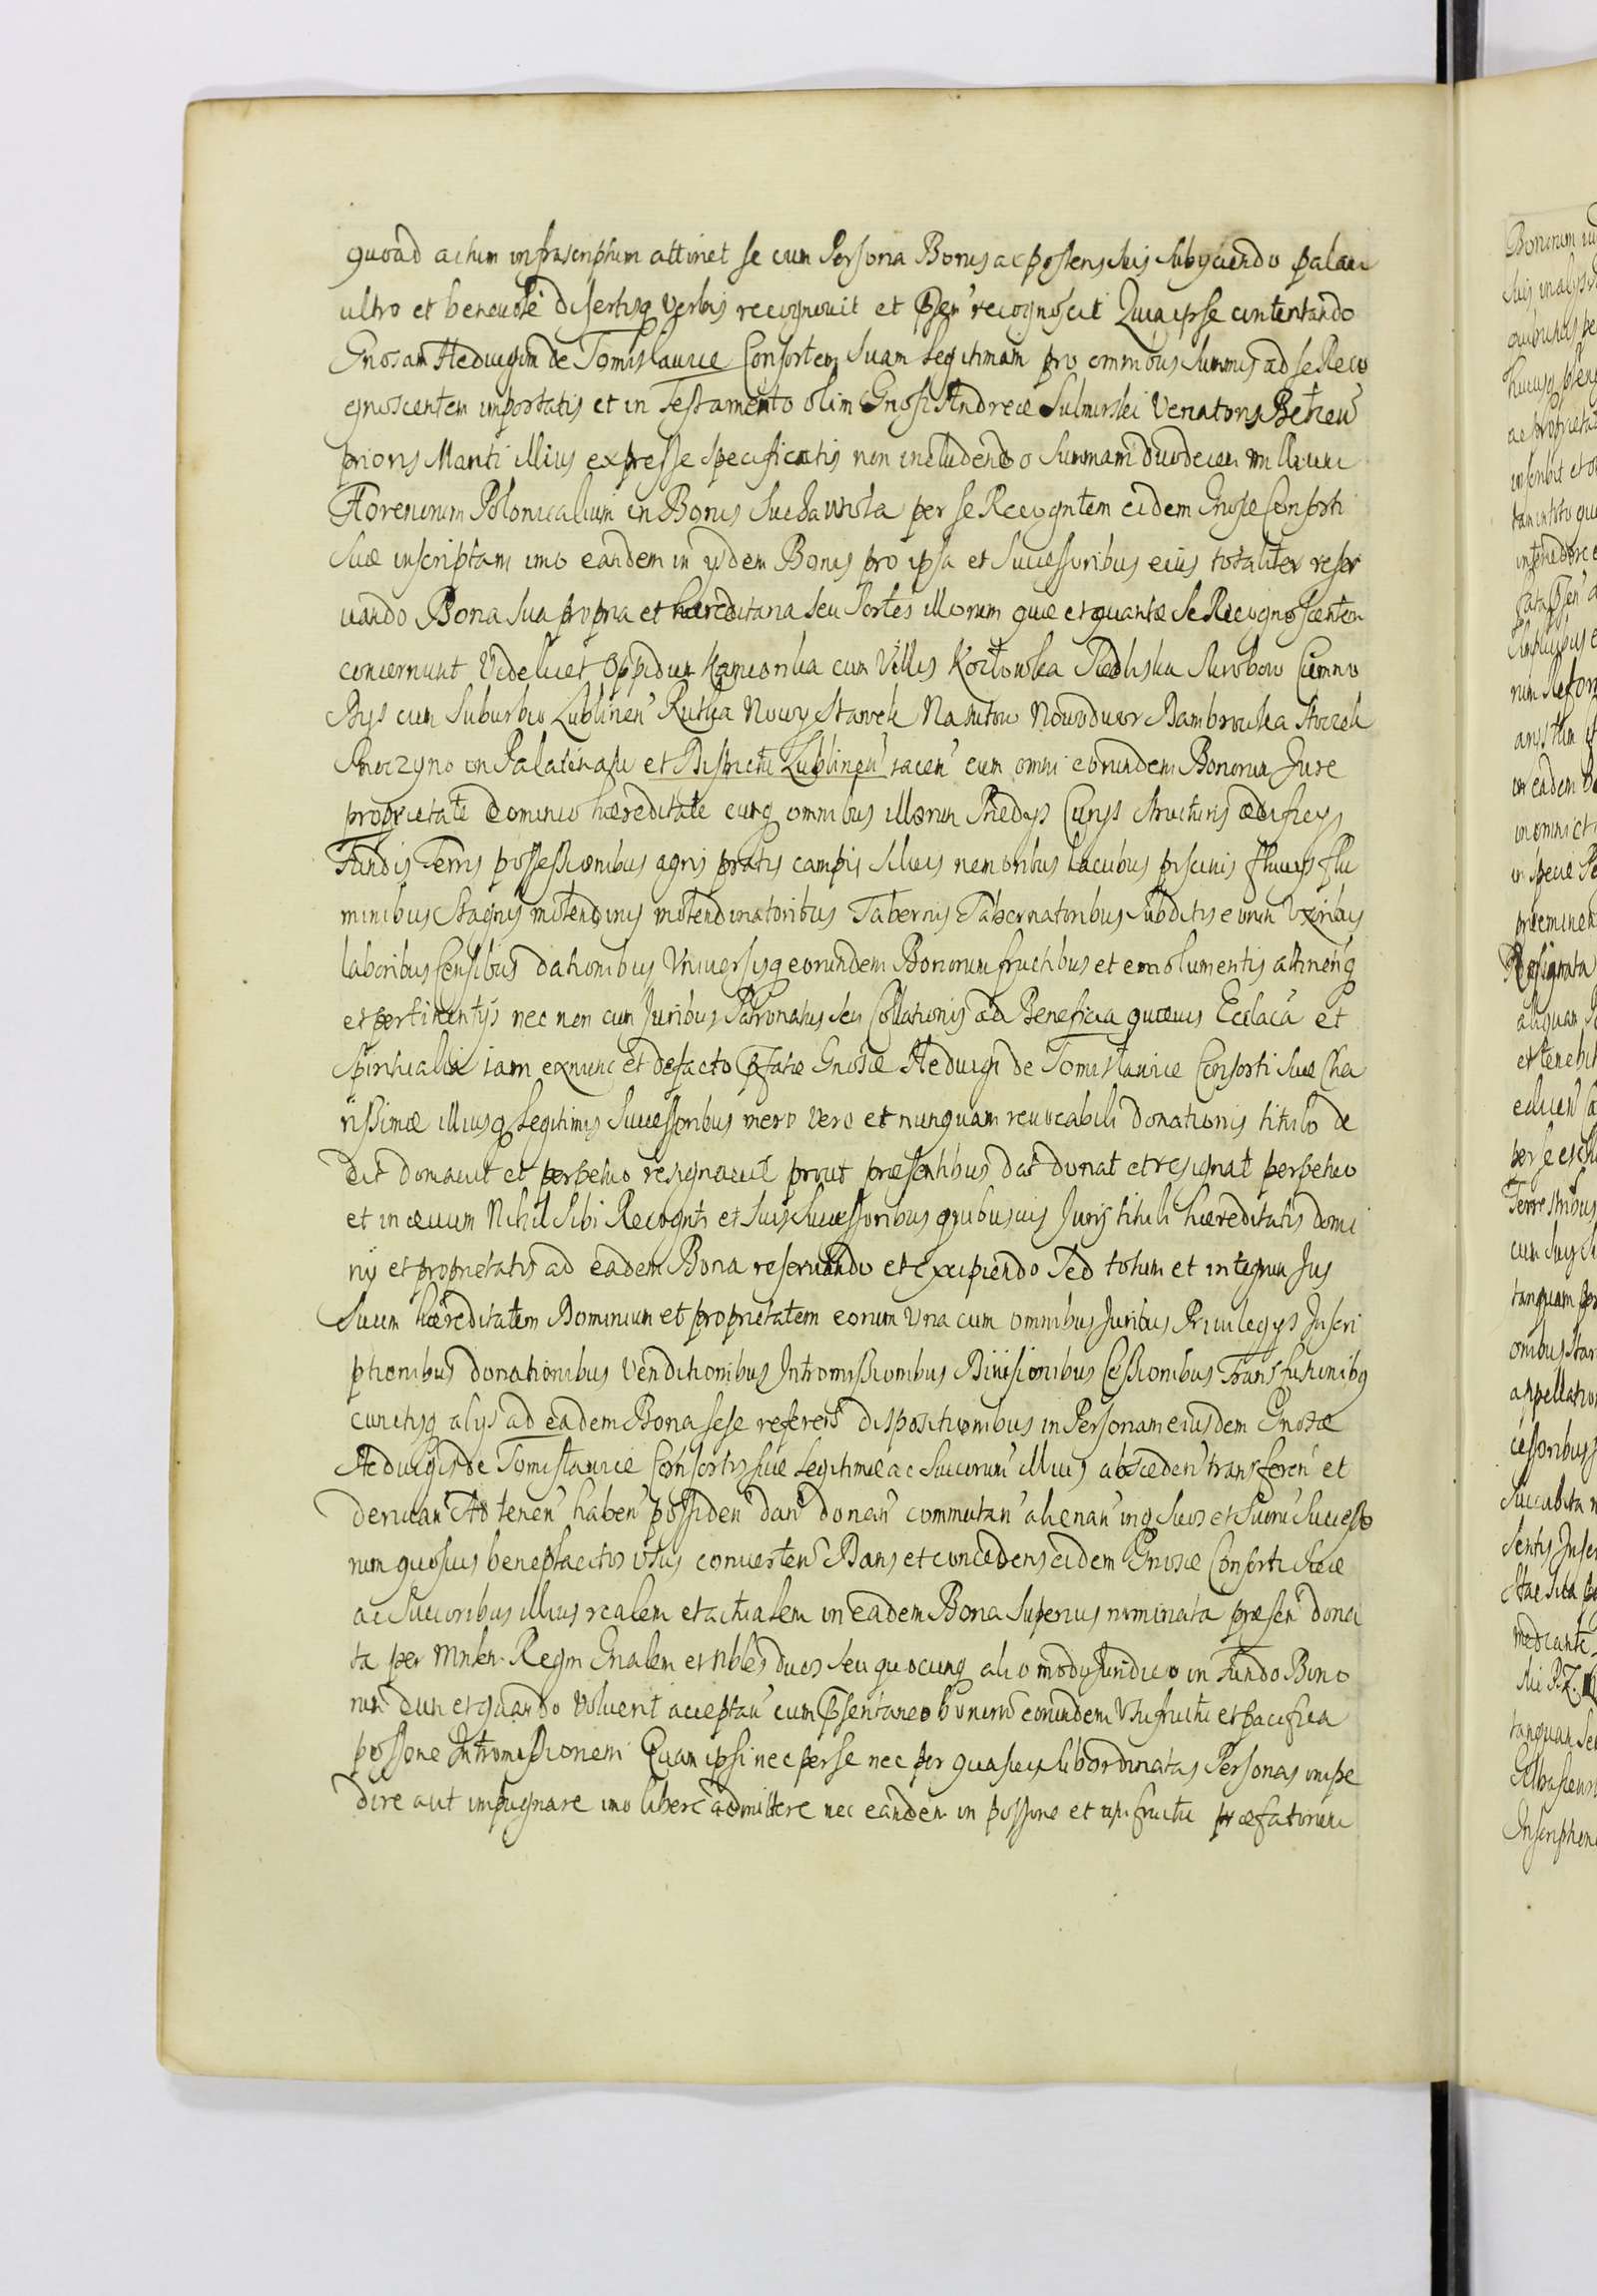 quoad actum infrascriptum attinet se cum Persona Bonis ac posteris suis subyciendo palam
ultro et benevole disertisq verbis recognovit et pñter recognoscit Quia ipse contentando
Gnosam Hedvigim de Tomislavice Consortem suam legitimam pro omnibus summis ad se Reco
gnoscentem importatis et in testamento olim Gnosi Andreæ Sulmirski Venatoris
prioris Mariti illius expresse specificatis non includendo summam duodecim millium
Florenorum Polonicalium in Bonis Sucha Wola per se Recogntem eidem Gnosæ Consorti
suæ inscriptam imo eandem in ijsdem Bonis pro ipsa et Successoribus eius totaliter reser
uando Bona sua propria et hæreditaria seu Sortes illorum quæ et quantæ se Recognoscentem
concernunt videlicet oppidum Kamionka cum Villis Kozłowka Siedliska Skrobow Ciemno
cum Suburbio Lublinen Rutka Nowy Stawek Nasutow Nowodwor Dambrowka Stoczek
in Palatinatu et Districtu Lublinen iacen cum omni eorundem Bonorum Jure
proprietate dominio hæreditate cumq omnibus illorum Prædijs Curijs structuris ædificijs
Fundis Terris possessionibus agris pratis campis siluis nemoribus lacubus piscinis fluuijs flu
minibus stagnis molendinis molendinatoribus Tabernis Tabernatoribus subditis eorum Uxoribus
laboribus Censibus dationibus Universisq eorundem Bonorum fructibus et emolumentis attinenq
et pertinentijs nec non cum Juribus Patronatus seu Collationis ad Beneficia quæuis Ecclaca et
spiritualia iam exnunc et defacto pfatæ Gnosæ Hedvigi de Tomislavice Consorti suæ Cha
rissimæ illiusq legitimis Successoribus mero vero et nunquam reuocabili donationis titulo de
dit donauit et perpetuo resignauit prout præsentibus dat donat et resignat perpetuo
et in æuum Nihil Sibi Recognti et suis Successoribus quibusuis Juris tituli hæreditatis domi
nij et proprietatis ad eadem Bona reseruando et Excipiendo Sed totum et integrum Jus
suum hæreditatem Dominium et proprietatem eorum Una cum omnibus Juribus Priuilegijs Inscri
ptionibus donationibus Venditionibus Intromissionibus Diuisionibus Cessionibus Transfusionibq
cunctisq alijs ad eadem Bona sese referen dispositionibus in Personam eiusdem Gnosæ
Hedvigis de Tomislavice Consortis suæ legitimæ ac Succorum illius absceden transferen et
deriuan Ad tenen haben possiden dan donan commutan alienan inq suos et suorum Successo
rum quosuis beneplacitos usus conuerten Dans et concedens eidem Gnosæ Consorti suæ
ac Succoribus illius realem et actualem in eadem Bona superius nominata præsen dona
ta per Mnlen Regni Gnalem et Nbles duos seu quocunq alio modo Juridico in Fundo Bono
rum dum et quando voluerit acceptan cum psentaneo bonorum eorundem Usufructu et pacifica
possone Intromissionem Quam ipsi nec per se nec per quasuis subordinatas Personas impe
dire aut impugnare imo libere admittere nec eandem in possone et usufructu præfatorum